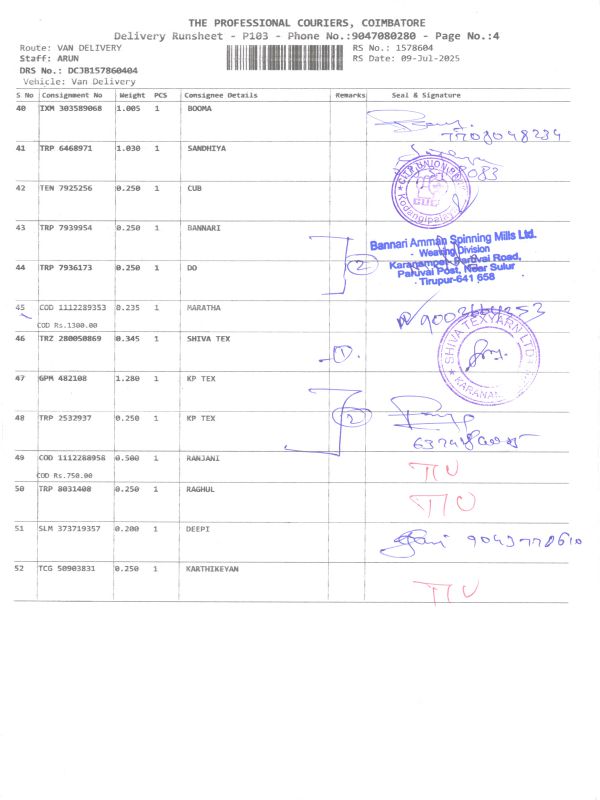 THE PROFESSIONAL COURIERS, COIMBATORE
Delivery Runsheet - P103 - Phone No.:9047080280 - Page No.:4
Route: VAN DELIVERY RS No.: 1578604
Staff: ARUN RS Date: 09-Jul-2025
DRS No.: DCJB157860404
Vehicle: Van Delivery
S No Consignment No Weight PCS Consignee Details Remarks Seal & Signature
40 IXM 303589068 1.005 1 BOOMA
7708048234
41 TRP 6468971 1.030 1 SANDHIYA
42 TEN 7925256 0.250 1 CUB
CITY UNION BANK
CUB
43 TRP 7939954 0.250 1 BANNARI
44 TRP 7936173 0.250 1 DO
2
Bannari Amman Spinning Mills Ltd.
- Weaving Division
Karanampet, Paruvai Road,
Paruvai Post, Near Sulur
Tirupur-641 658
45 COD 1112289353 0.235 1 MARATHA
COD Rs.1300.00
46 TRZ 280050869 0.345 1 SHIVA TEX
1
SHIVA TEXYARN LTD
47 GPM 482108 1.280 1 KP TEX
48 TRP 2532937 0.250 1 KP TEX
2
49 COD 1112288958 0.500 1 RANJANI
COD Rs.750.00
50 TRP 8031408 0.250 1 RAGHUL
51 SLM 373719357 0.200 1 DEEPI
52 TCG 50903831 0.250 1 KARTHIKEYAN